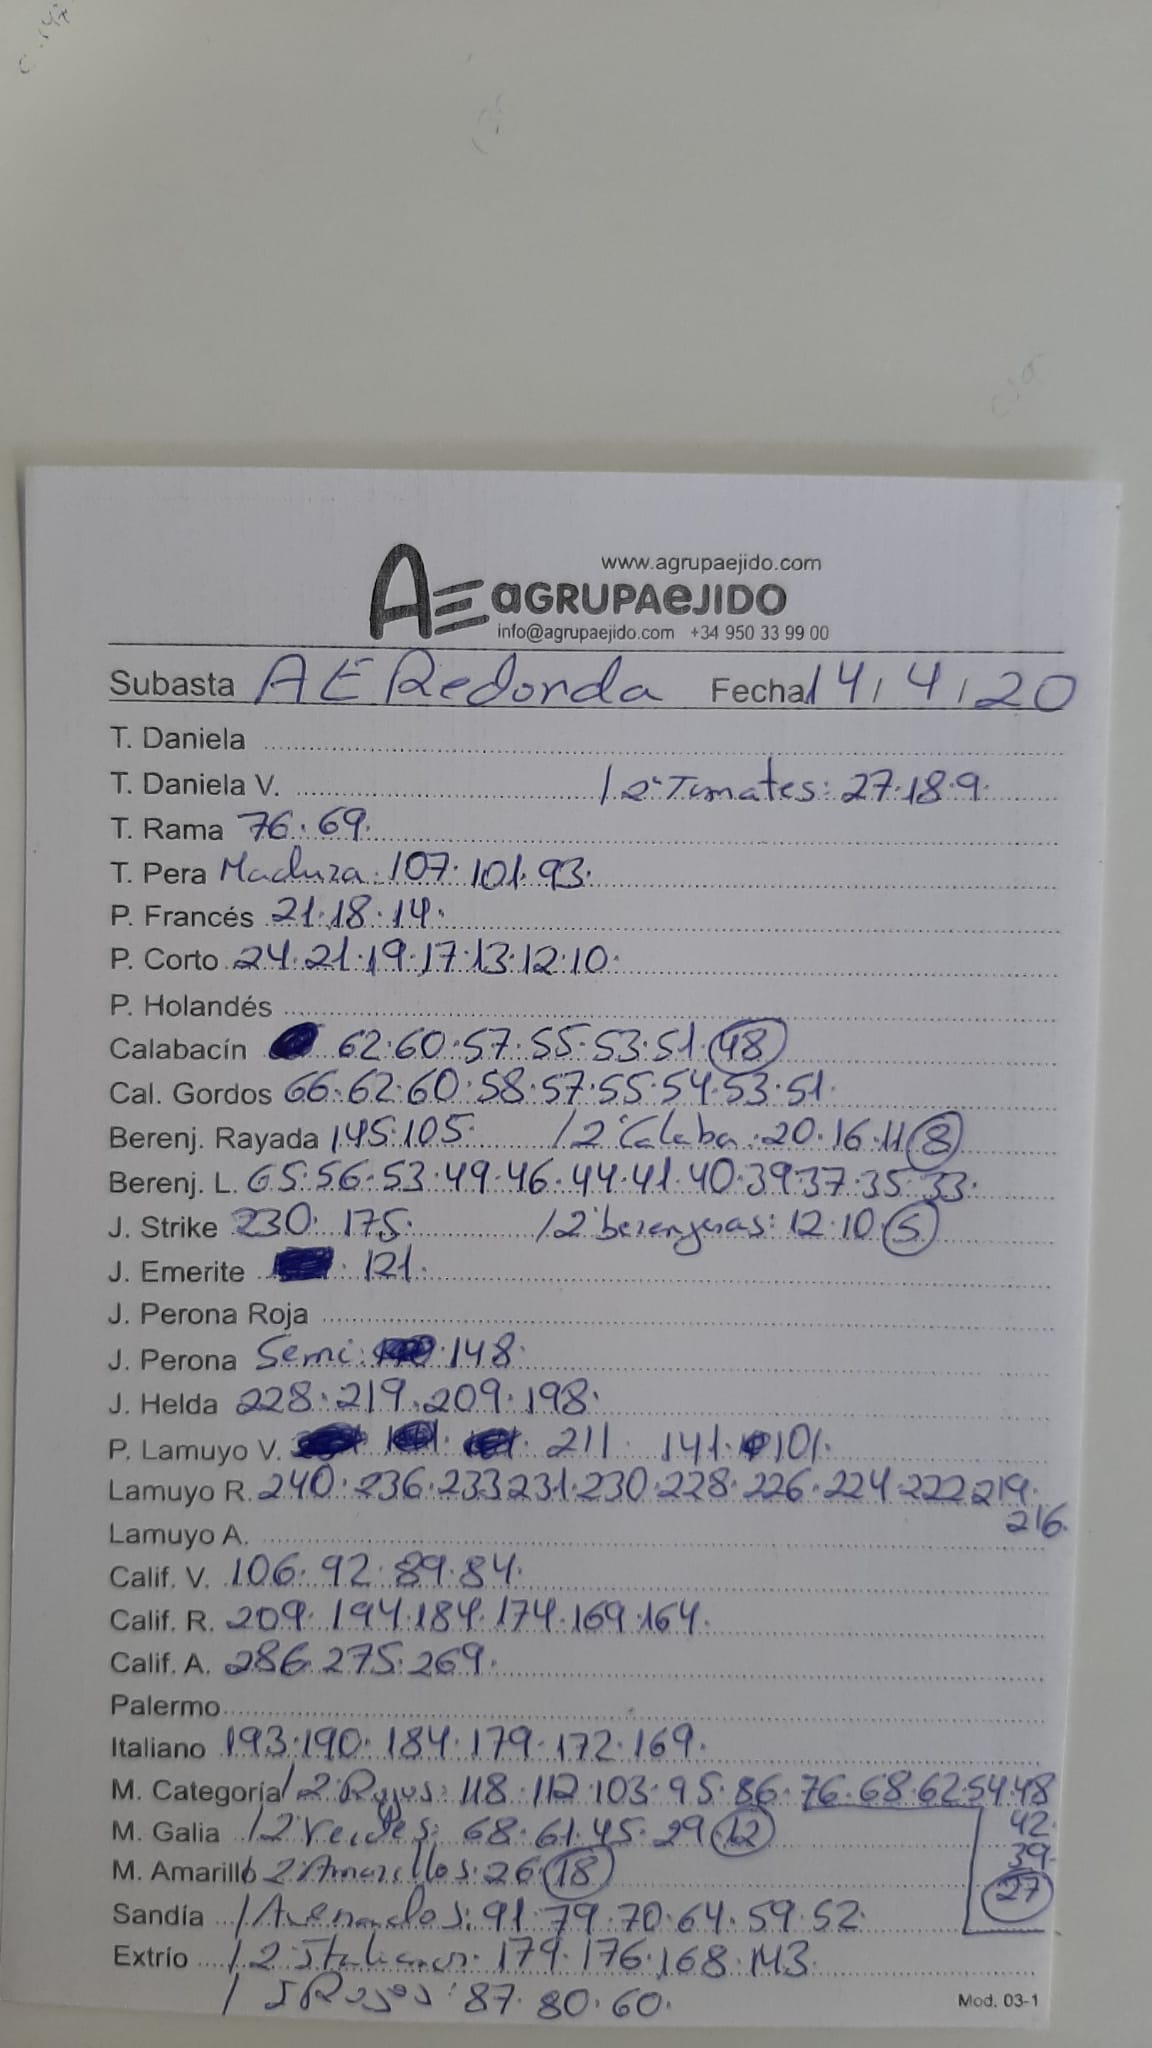 www.agrupaejido.com
AE aGRUPAeJIDO
info@agrupaejido.com +34 950 33 99 00
Subasta AE Redonda Fecha 14/4/20
T. Daniela
T. Daniela V. / 2ª Tomates: 27.18.9.
T. Rama 76.69.
T. Pera Madura. 107.101.93.
P. Francés 21.18.14.
P. Corto 24.21.19.17.13.12.10.
P. Holandés
Calabacín 62.60.57.55.53.51.48
Cal. Gordos 66.62.60.58.57.55.54.53.51.
Berenj. Rayada 145.105. / 2ª Calaba: 20.16.11.8
Berenj. L. 65.56.53.49.46.44.41.40.39.37.35.33.
J. Strike 230. 175. / 2ª berenjenas: 12.10.5
J. Emerite 121.
J. Perona Roja
J. Perona Semi: 148.
J. Helda 228.219.209.198.
P. Lamuyo V. 211. 141. 101.
Lamuyo R. 240.236.233.231.230.228.226.224.222.219.
216.
Lamuyo A.
Calif. V. 106.92.89.84.
Calif. R. 209.194.184.174.169.164.
Calif. A. 286.275.269.
Palermo
Italiano 193.190.184.179.172.169.
M. Categoría / 2ª Rojos: 118.112.103.95.86.76.68.62.54.48
42.
M. Galia / 2ª Verdes: 68.61.45.29.12
39.
M. Amarillo 2ª Amarillos: 26.18
27
Sandía / Asurados: 91.79.70.64.59.52
Extrío / 2ª Italianos: 179.176.168.143.
/ Rojos: 87.80.60.
Mod. 03-1